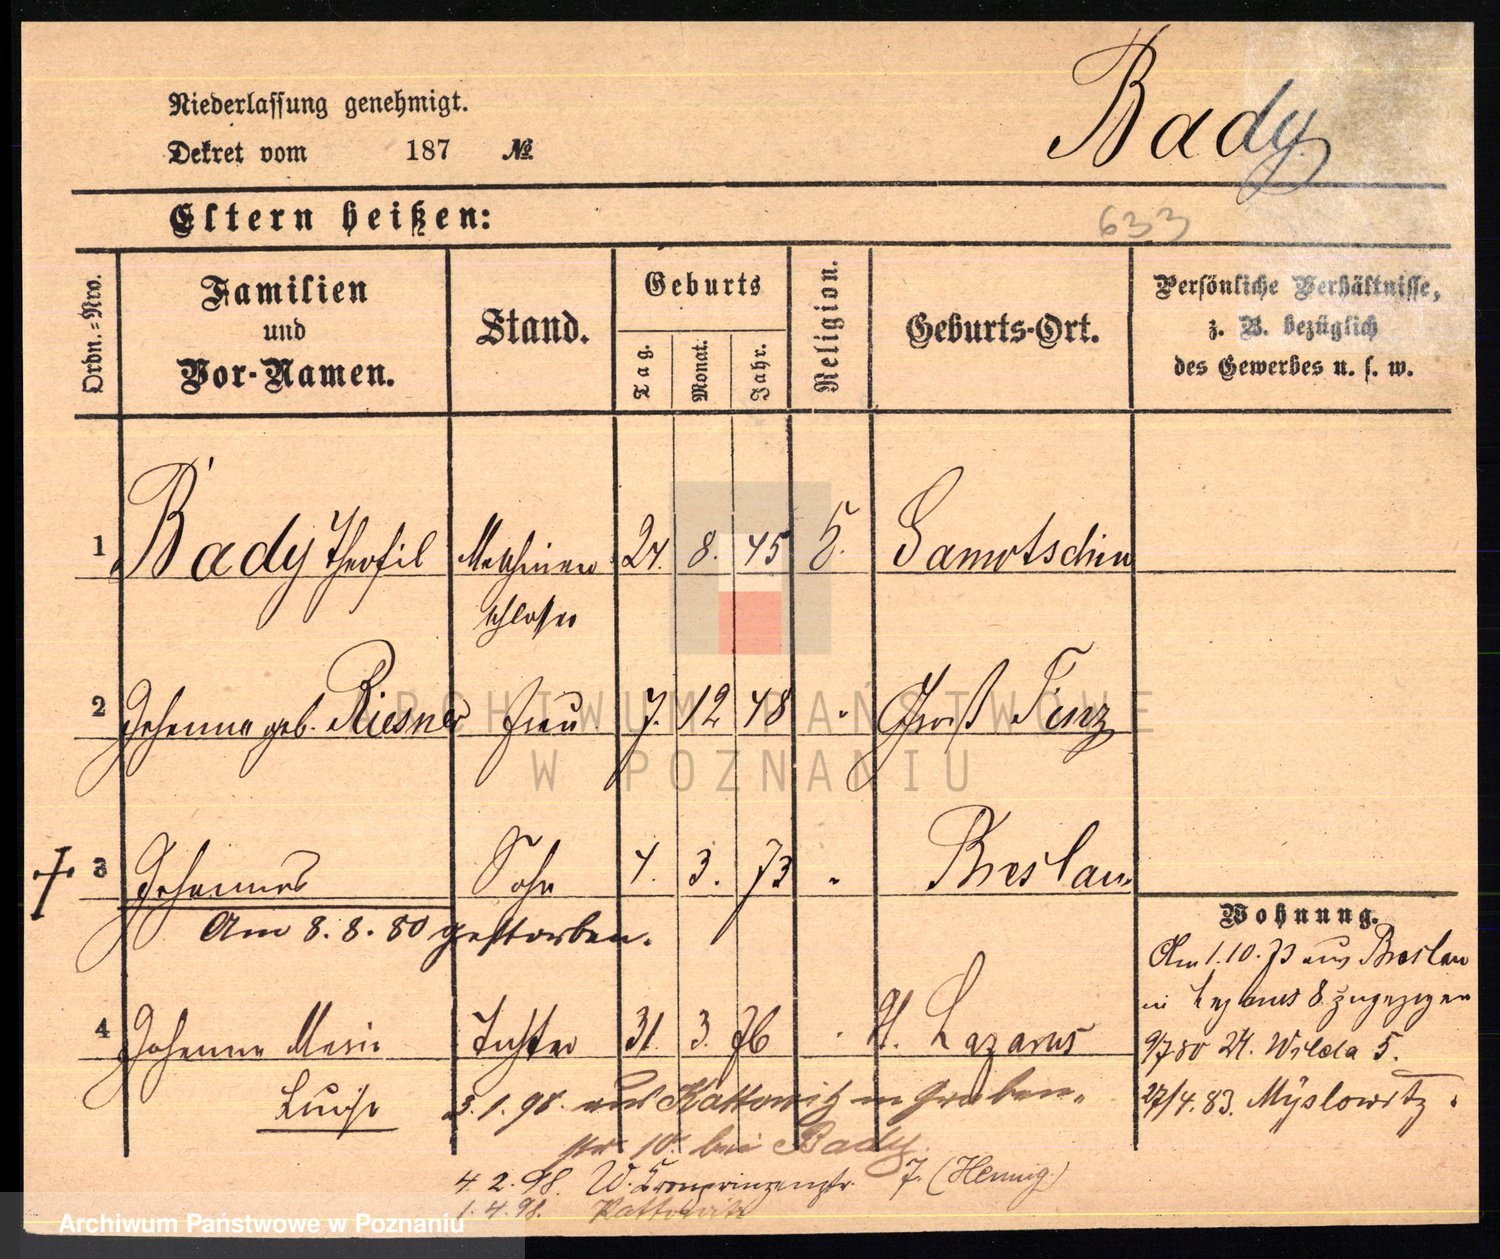 Niederlassung genehmigt.
Bady
Dekret vom 187 №
Eltern heißen:
633
Ordn.=Nro.
Familien
und
Vor-Namen.
Stand.
Geburts
Tag.
Monat.
Jahr.
Religion.
Geburts-Ort.
Persönliche Verhältnisse,
z. B. bezüglich
des Gewerbes u. s. w.
1 Bady Theofil Maschinen 24. 8. 45 Samotschin
schlosser
2 Johanna geb. Riesner Frau 7. 12 48 " Groß Tinz
3 Johannes Sohn 4. 3. 73 " Breslau
Am 8. 8. 80 gestorben.
4 Johanna Marie Tochter 31. 3. 76 " St. Lazarus
Luise
5.1.98. aus Kattowitz in Graben-
str 10. bei Bady
4.2.98. W. Kronprinzenstr. 7. (Hennig)
1.4.98. Kattowitz
Wohnung.
Am 1.10.73 aus Breslau
in Lazarus 8 zugezogen
9/7 80 Wilda 5.
27/4.83. Myslowitz.
ARCHIWUM PAŃSTWOWE
W POZNANIU
Archiwum Państwowe w Poznaniu